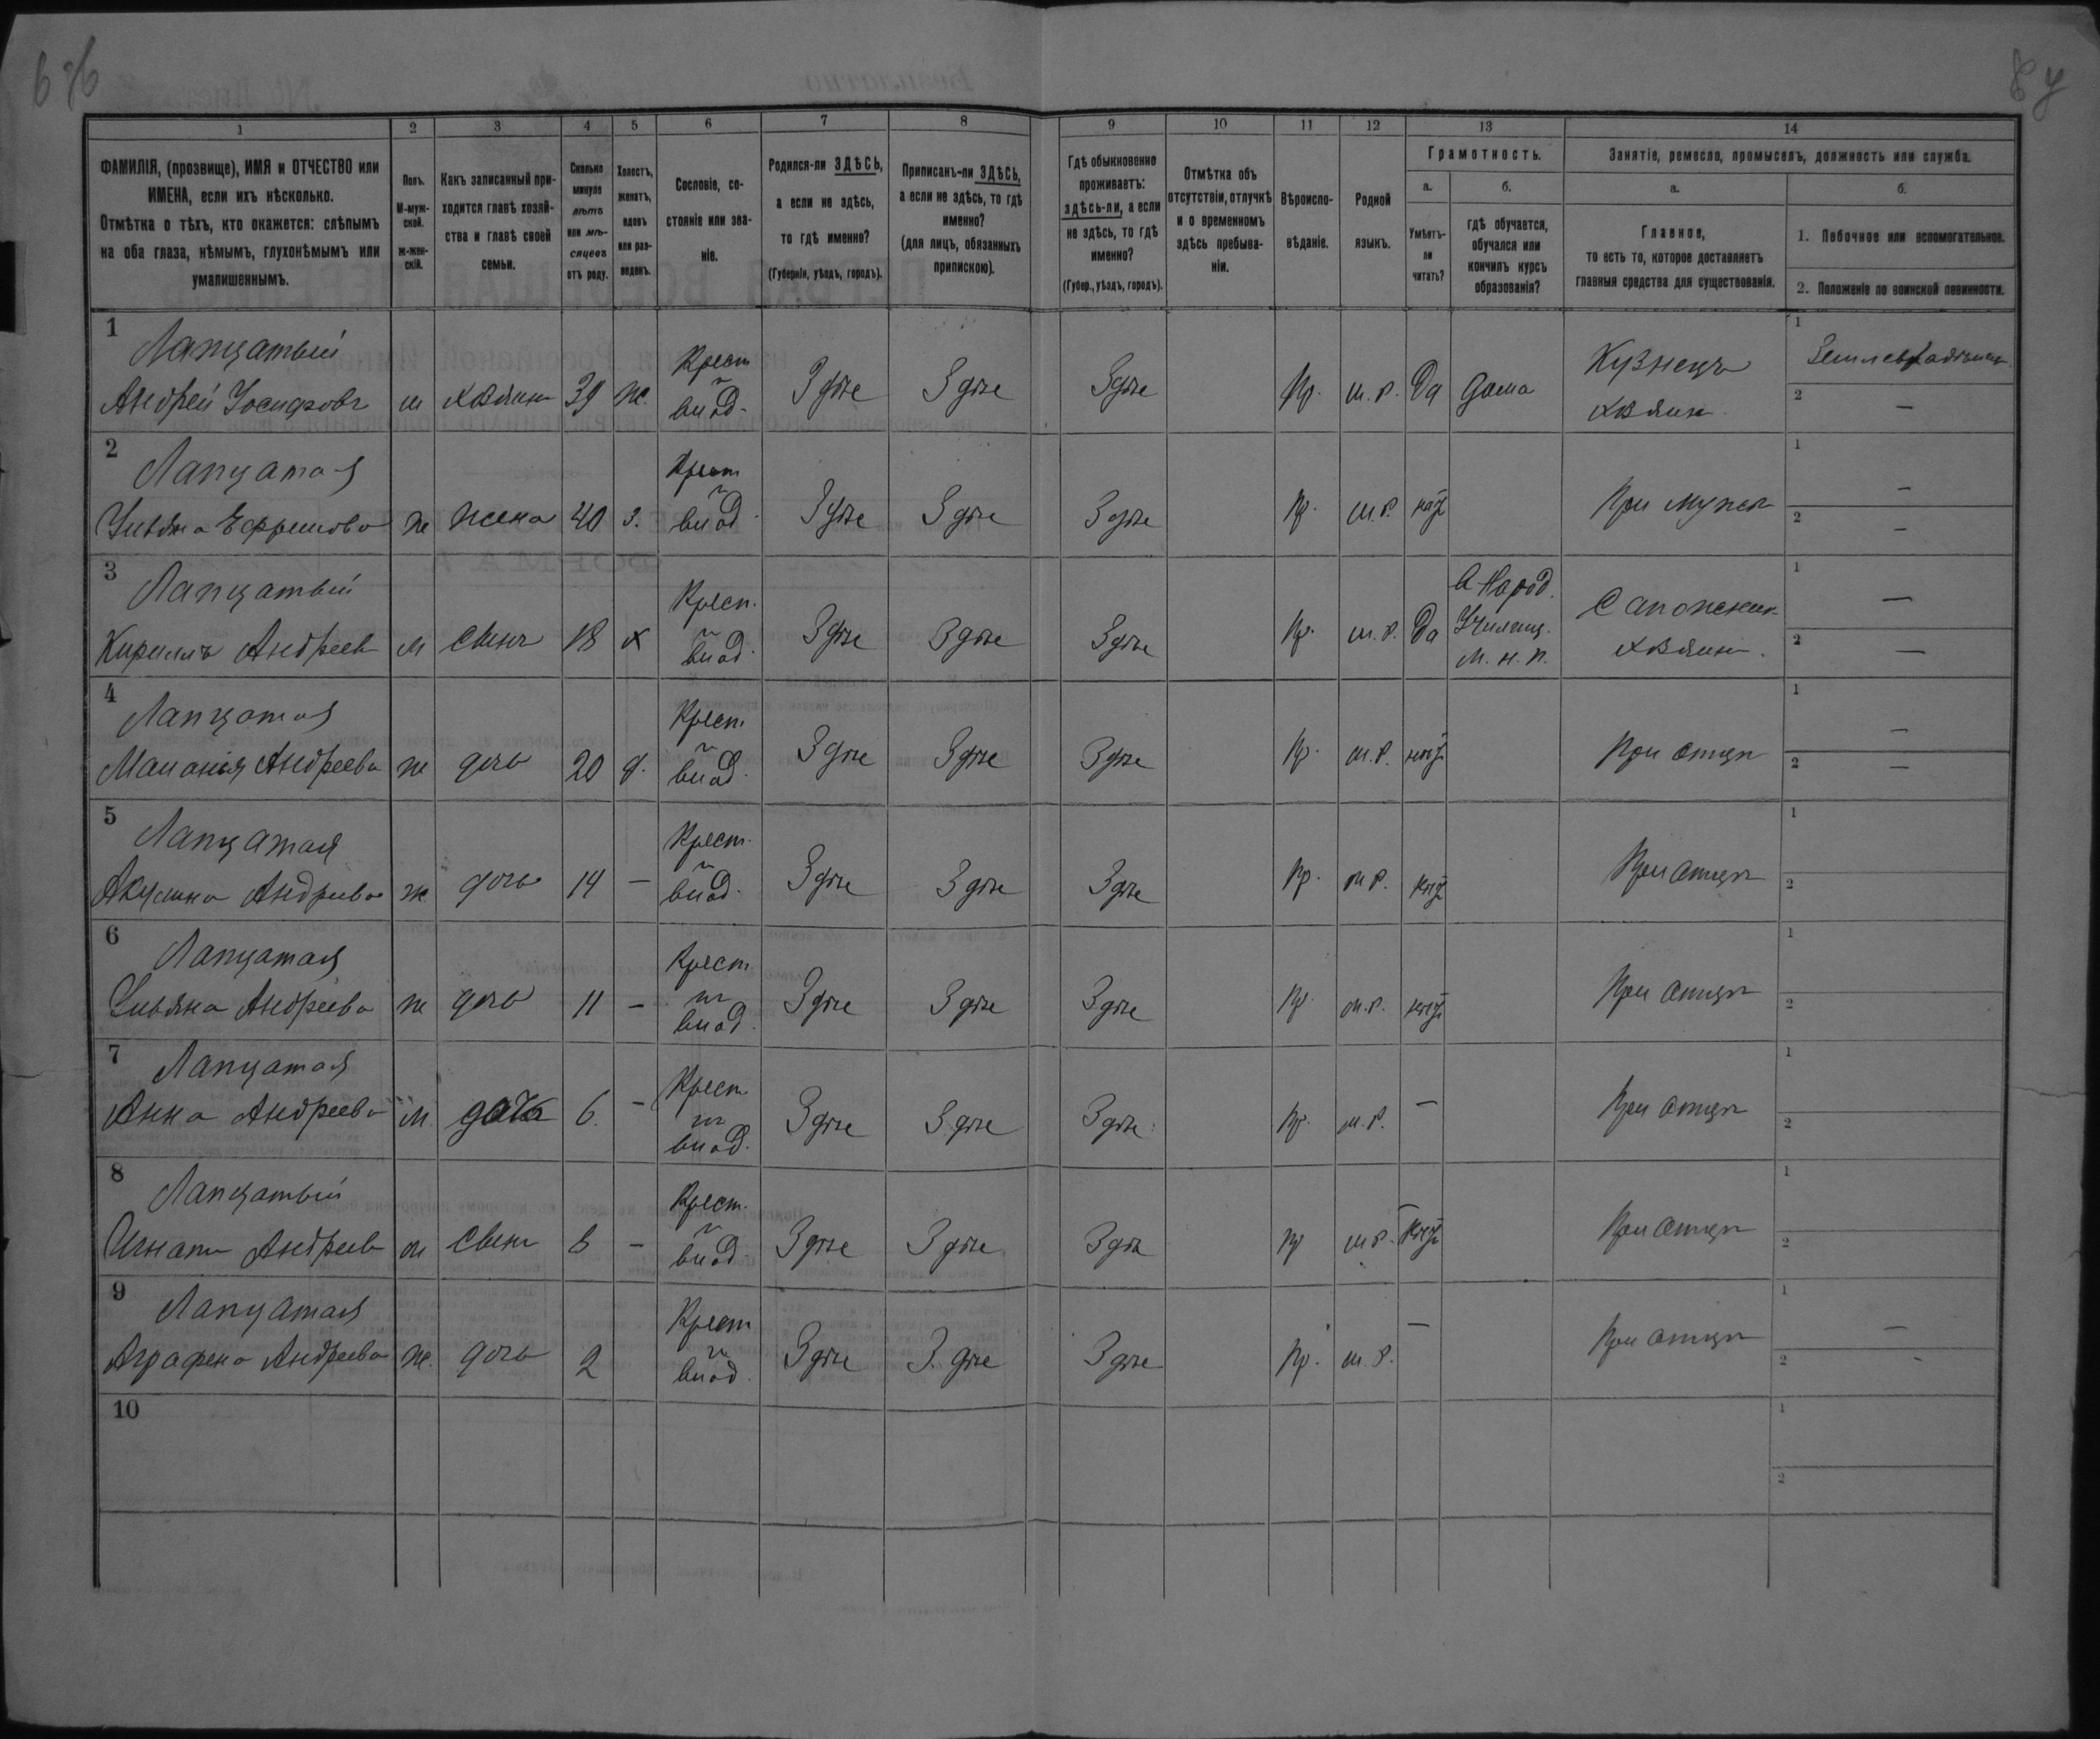 1 2 3 4 5 6 7 8 9 10 11 12 13 14
ФАМИЛІЯ, (прозвище), ИМЯ и ОТЧЕСТВО или
ИМЕНА, если ихъ нѣсколько.
Отмѣтка о тѣхъ, кто окажется: слѣпымъ
на оба глаза, нѣмымъ, глухонѣмымъ или
умалишеннымъ.
Полъ.
М-муж-
ской.
ж-жен-
скій.
Какъ записанный при-
ходится главѣ хозяй-
ства и главѣ своей
семьи.
Сколько
минуло
лѣтъ
или мѣ-
сяцевъ
отъ роду.
Холостъ,
женатъ,
вдовъ
или раз-
веденъ.
Сословіе, со-
стояніе или зва-
ніе.
Родился-ли ЗДѢСЬ,
а если не здѣсь,
то гдѣ именно?
(Губернія, уѣздъ, городъ).
Приписанъ-ли ЗДѢСЬ,
а если не здѣсь, то гдѣ
именно?
(для лицъ, обязанныхъ
припискою).
Гдѣ обыкновенно
проживаетъ:
здѣсь-ли, а если
не здѣсь, то гдѣ
именно?
(Губер., уѣздъ, городъ).
Отмѣтка объ
отсутствіи, отлучкѣ
и о временномъ
здѣсь пребыва-
ніи.
Вѣроиспо-
вѣданіе.
Родной
языкъ.
Грамотность.
а.
Умѣетъ-
ли
читать?
б.
гдѣ обучается,
обучался или
кончилъ курсъ
образованія?
Занятіе, ремесло, промыселъ, должность или служба.
а.
Главное,
то есть то, которое доставляетъ
главныя средства для существованія.
б.
1. Побочное или вспомогательное.
2. Положеніе по воинской повинности.
1 Лапчатый Крест Кузнецъ 1
Андрей Іосифовъ м хозяинъ 39 ж. Здѣсь Здѣсь Здѣсь Пр. м. р. Да дома хозяинъ 2 —
2 Лапчатая Крест 1 —
Ульяна Ефимова ж жена 40 з. Здѣсь Здѣсь Здѣсь Пр. м. р. нѣтъ При мужѣ 2 —
3 Лапчатый Крест. Народ. Сапожник 1 —
Кириллъ Андреев м сынъ 18 х Здѣсь Здѣсь Здѣсь Пр. м. р. Да Училищ. хозяин. 2 —
М. н. п.
4 Лапчатая Крест. 1 —
Маланья Андреева ж дочь 20 д. Здѣсь Здѣсь Здѣсь Пр. м. р. нѣтъ При отцѣ 2 —
5 Лапчатая Крест. 1
Акулина Андреева ж дочь 14 — Здѣсь Здѣсь Здѣсь Пр. м р. нѣтъ При отцѣ 2
6 Лапчатая Крест. 1
Ульяна Андреева ж дочь 11 — Здѣсь Здѣсь Здѣсь Пр. м. р. нѣтъ При отцѣ 2
7 Лапчатая Крест. 1
Анна Андреева м дочь 6. — Здѣсь Здѣсь Здѣсь Пр. м. р. — При отцѣ 2
8 Лапчатый Крест. 1
Игнатъ Андреев м сынъ 8 — Здѣсь Здѣсь Здѣсь Пр м. р. нѣтъ При отцѣ 2
9 Лапчатая Крест 1 —
Аграфена Андреева ж. дочь 2 Здѣсь Здѣсь Здѣсь Пр. м. р. — При отцѣ 2 -
10 1
2